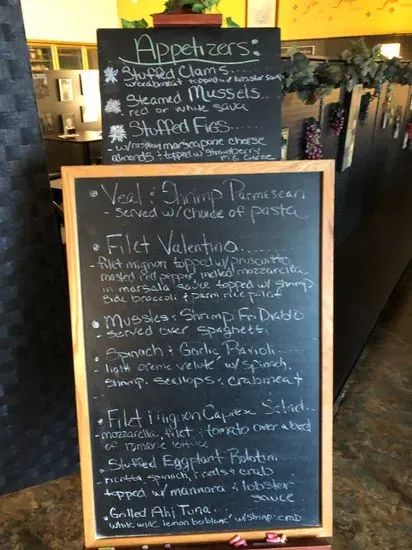 Appetizers:
Stuffed Clams......
w/crabmeat topped w/ lobster sauce
Steamed Mussels..
red or white sauce
Stuffed Figs......
w/ marscapone cheese
almonds & topped w/ strawberry
Fig Glaze
Veal & Shrimp Parmesean
- served w/ choice of pasta
Filet Valentino.........
- filet mignon topped w/ prosciutto
roasted red pepper, melted mozzarella,
in marsala sauce topped w/ shrimp
side broccoli & parm rice pilaf
Mussles & Shrimp Fri Diablo
- served over spaghetti
Spinach & Garlic Ravioli....
- light creme veloute w/ spinach,
shrimp, scallops & crabmeat
Filet Mignon Caprese Salad...
- mozzarella, filet & tomato over a bed
of romaine lettuce
Stuffed Eggplant Rolotini....
- ricotta, spinach, & crab
topped w/ marinara & lobster
sauce
Grilled Ahi Tuna.....
white wine lemon w/ shrimp & crab